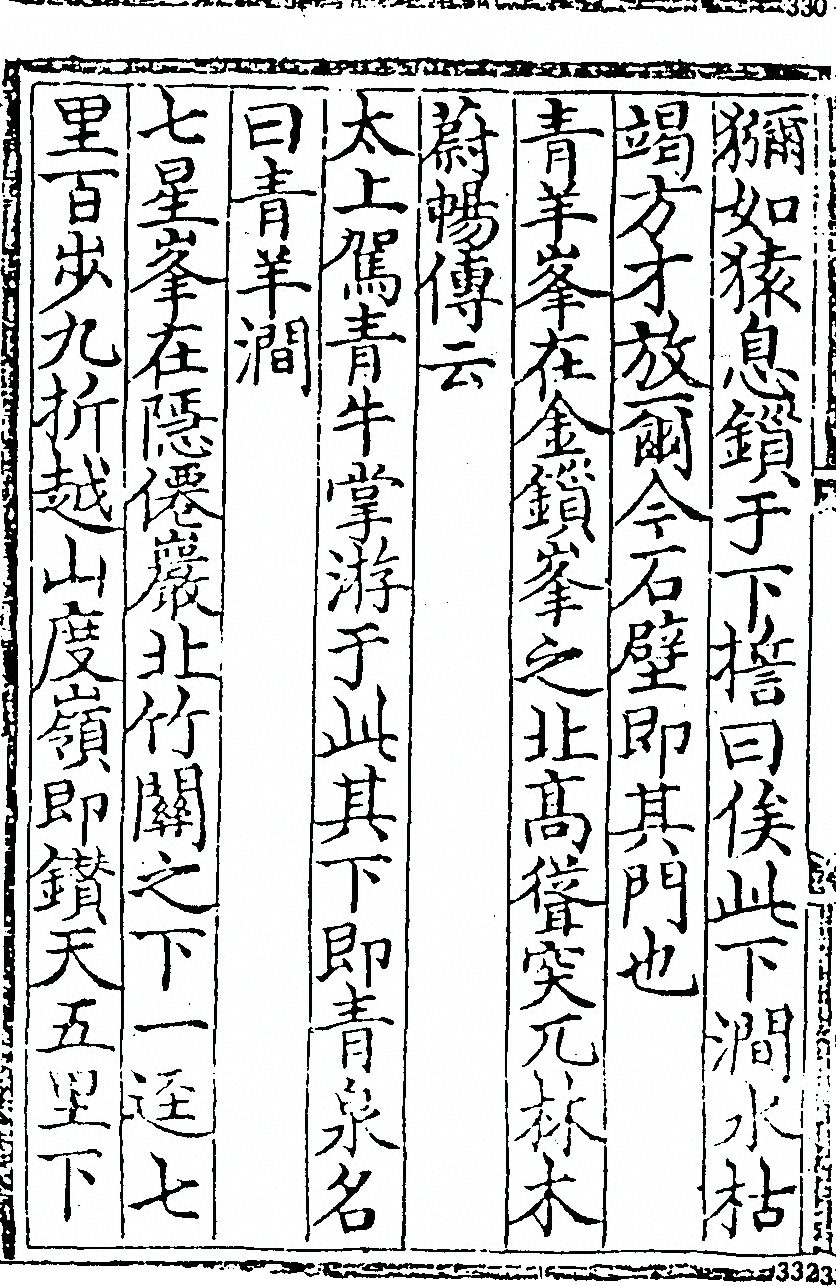 330
獼如猿息鎖于下擔曰俟此下澗水枯
竭方才放爾今石壁即其門也
青羊峯在金鎖峯之北高聳突兀林木
蔚暢傳云
太上駕青牛掌游于此其下即青泉名
曰青羊澗
七星峯在隱僊巖北竹關之下一逕七
里百步九折越山度嶺即鑽天五里下
3323